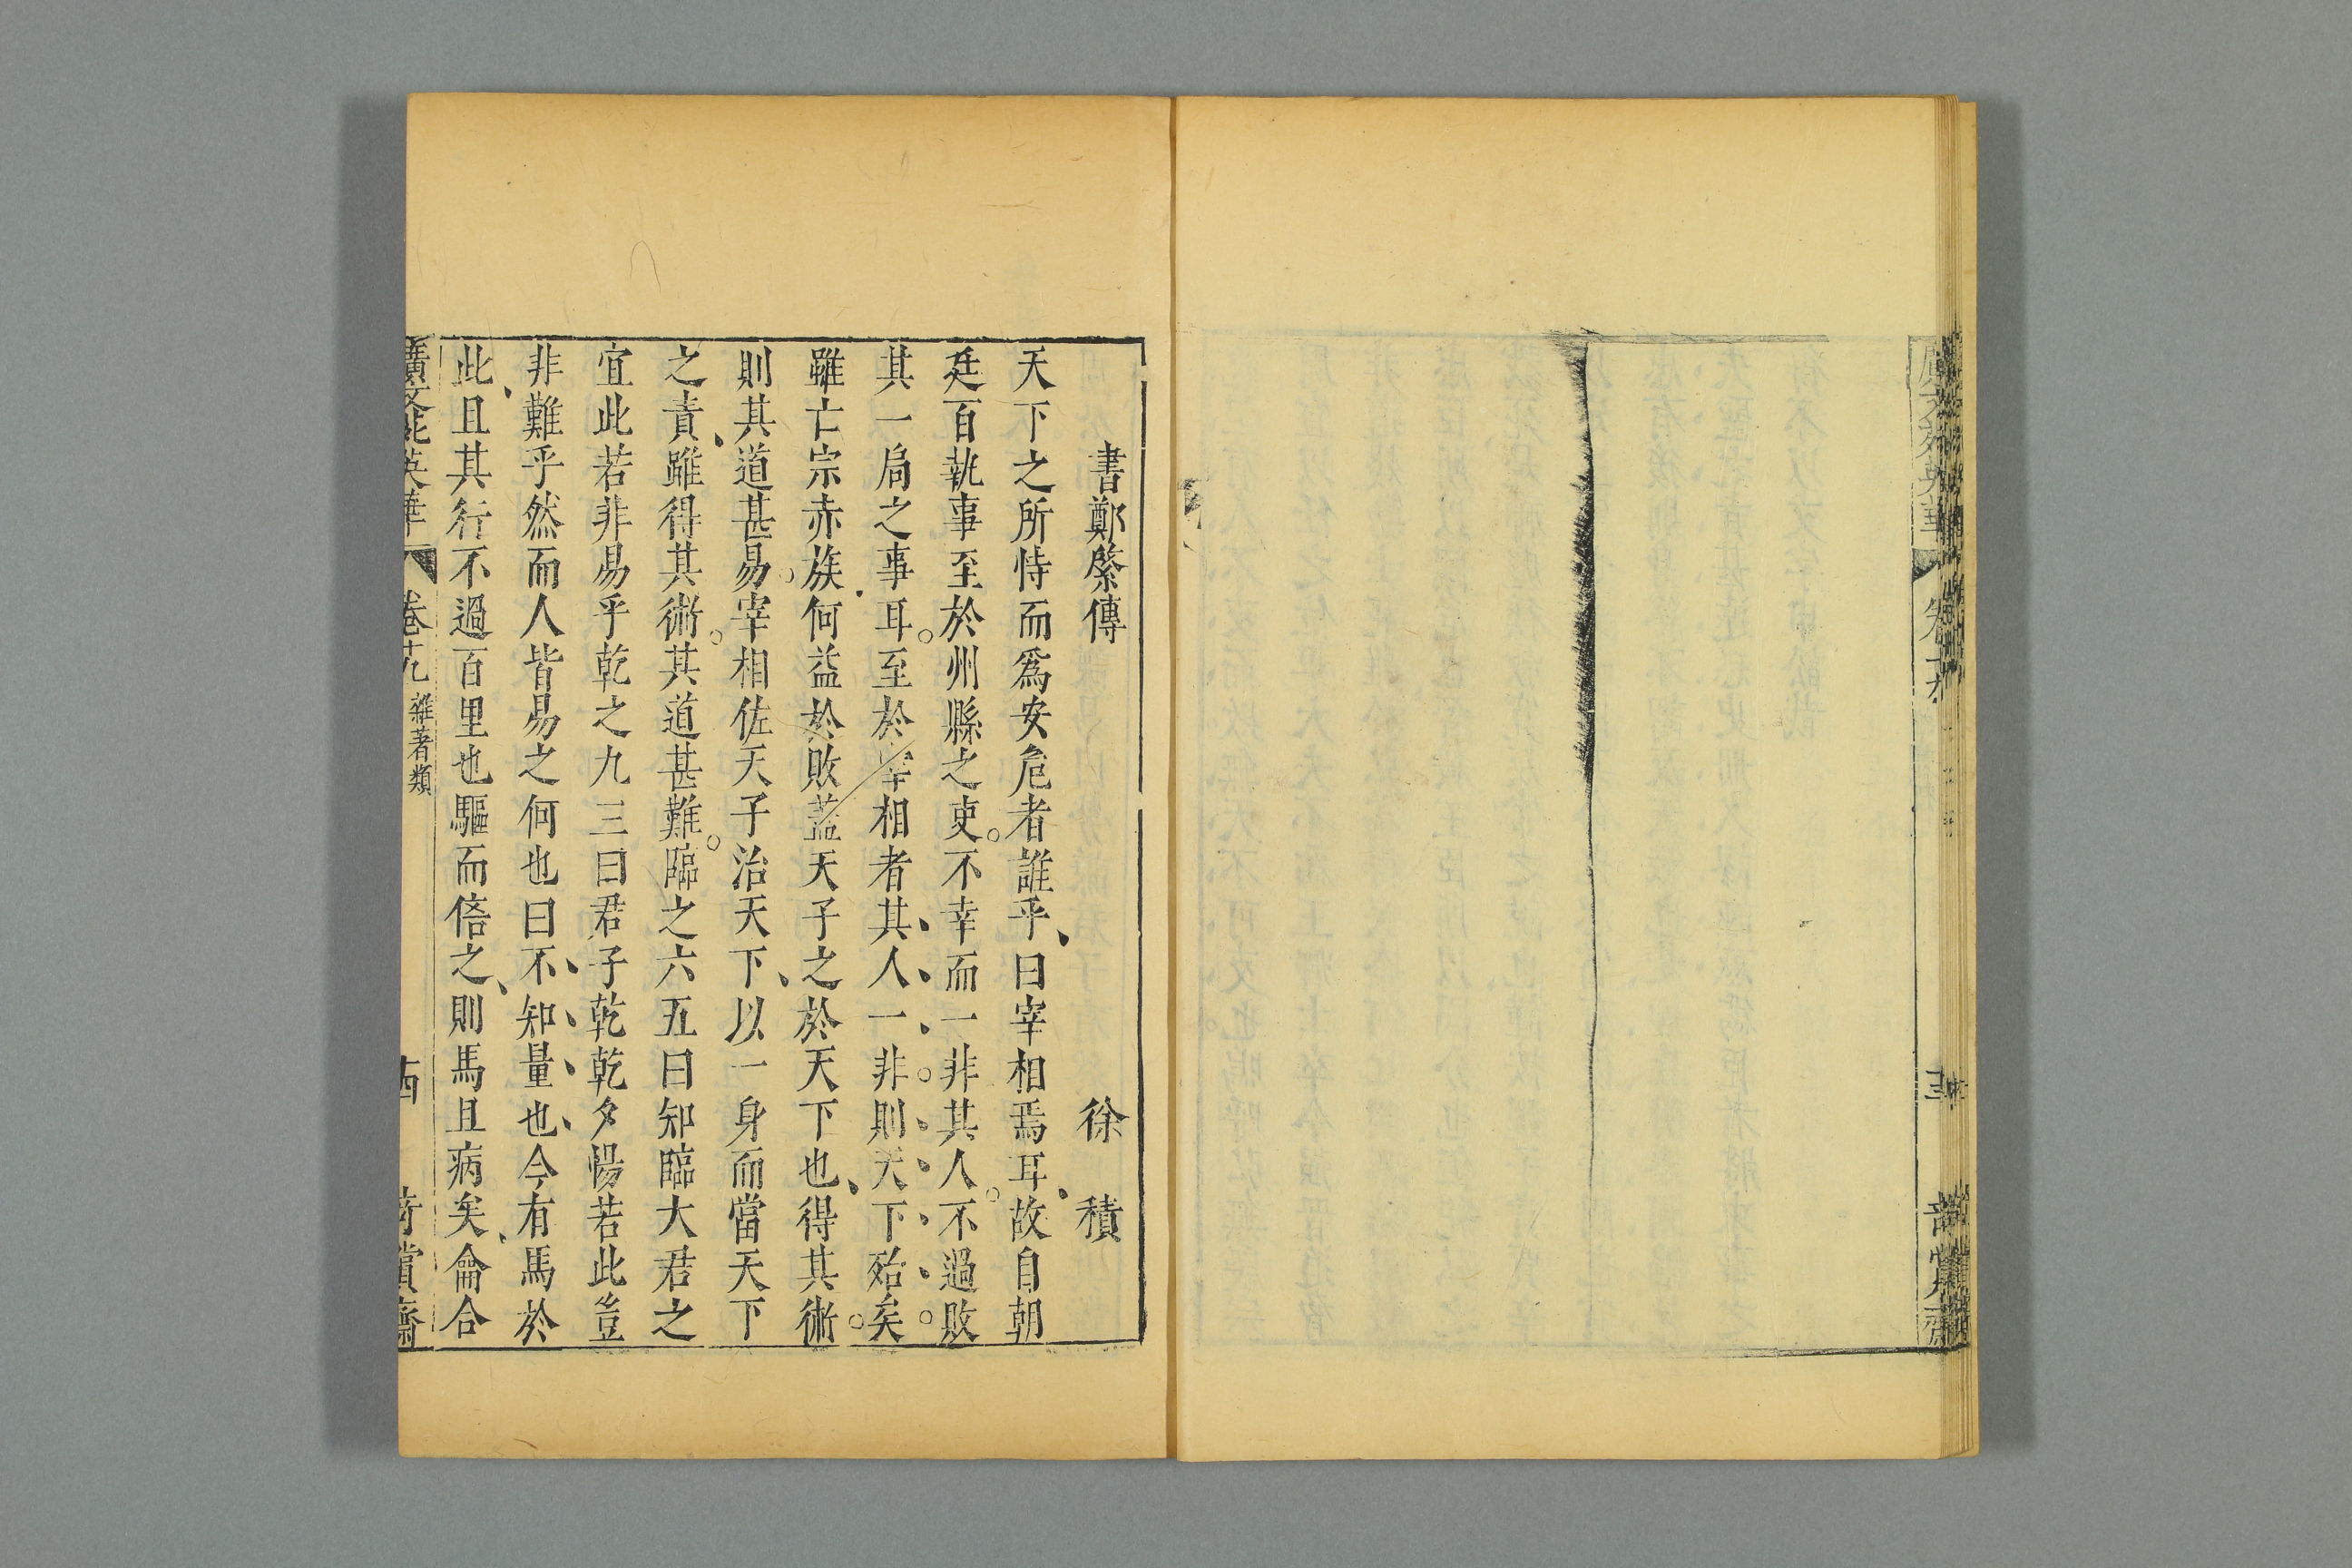 書鄭綮傳　徐積
天下之所恃而爲安危者誰乎曰宰相焉耳故自朝
廷百執事至於州縣之吏不幸而一非其人不過敗
其一局之事耳至於宰相者其人一非則天下殆矣
雖亡宗赤族何益於敗葢天子之於天下也得其術
則其道甚易宰相佐天子治天下以一身而當天下
之責雖得其術其道甚難臨之六五曰知臨大君之
宜此若非易乎乾之九三曰君子乾乾夕惕若此豈
非難乎然而人皆易之何也曰不知量也今有馬於
此且其行不過百里也驅而倍之則馬且病矣龠合
廣文苑英華
卷十九
雜著類